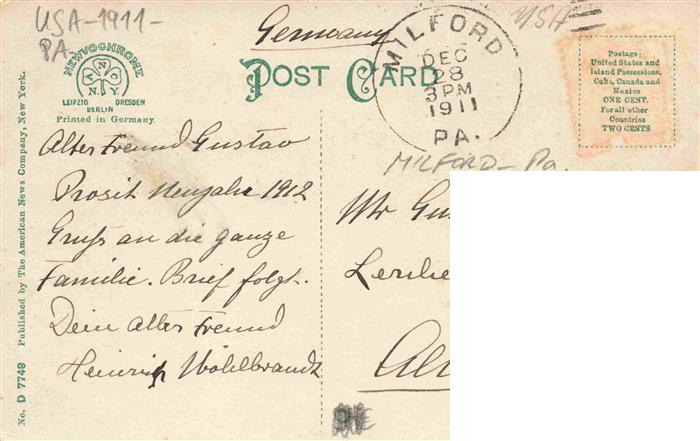 USA-1911-
PA
Germany
USA
NEWVOCHROME
ANCO
N.Y.
LEIPZIG DRESDEN
BERLIN
Printed in Germany.
POST CARD
MILFORD
DEC
28
3 PM
1911
PA.
Postage:
United States and
Island Possessions,
Cuba, Canada and
Mexico
ONE CENT.
For all other
Countries
TWO CENTS
MILFORD - Pa.
Alter Freund Gustav
Prosit Neujahr 1912
Gruß an die ganze
Familie. Brief folgt.
Dein alter Freund
Heinrich Wöhlbrandt
Mr Gus
No. D 7749 Published by The American News Company, New York.